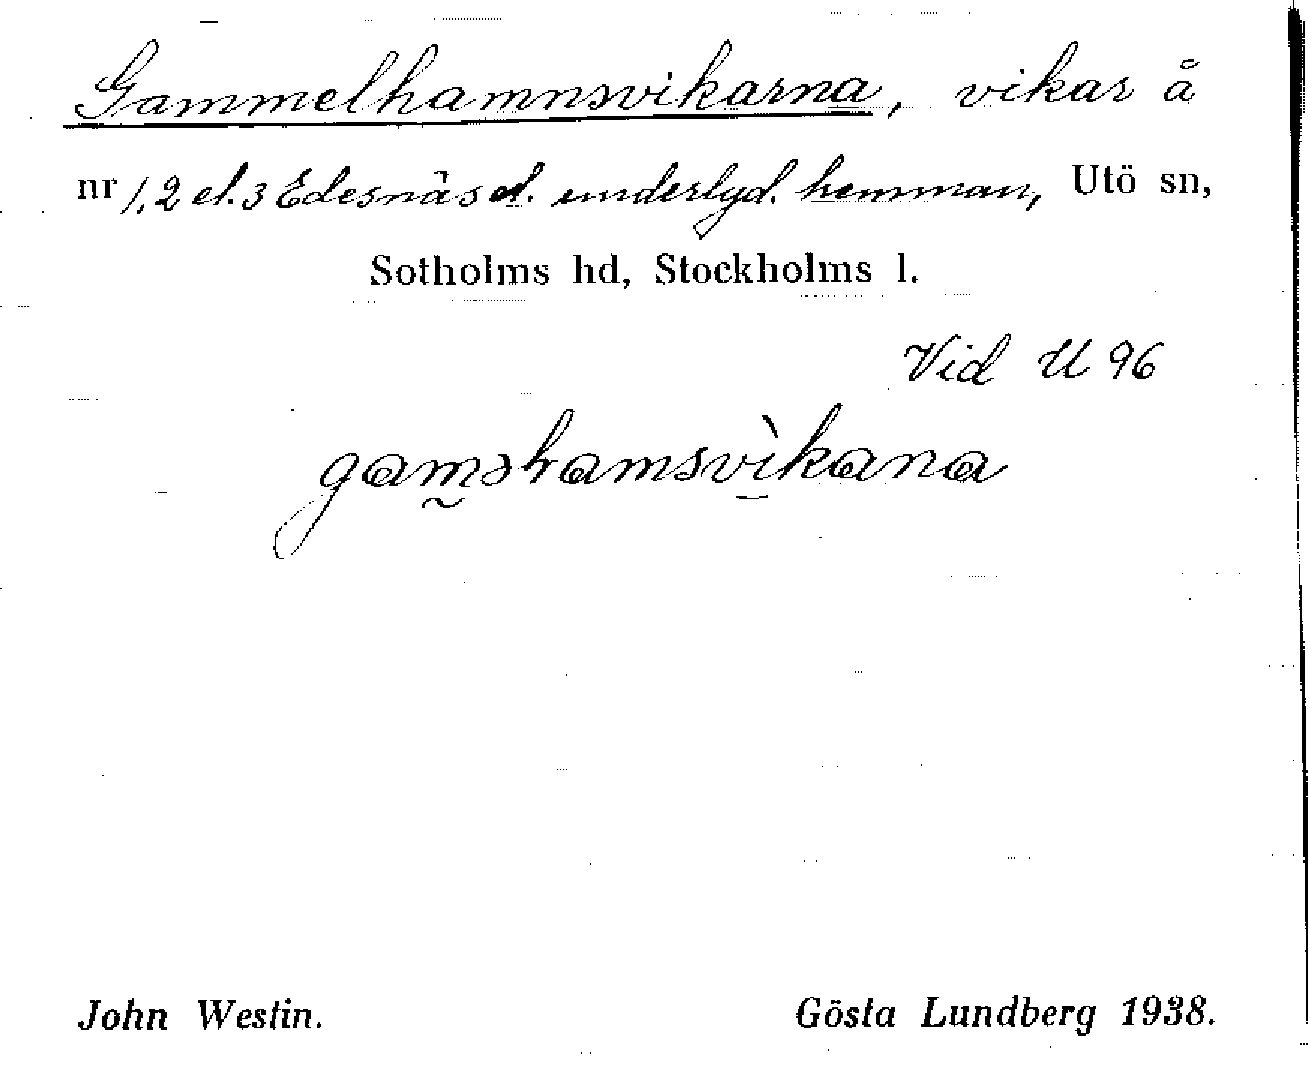 Gammelhamnsvikarna, vikar å
nr 1, 2 el. 3 Edesnäs el. underlyd. hemman, Utö sn,
Sotholms hd, Stockholms l.
Vid U 96
gam̰əhamsvìkana
John Westin. Gösta Lundberg 1938.